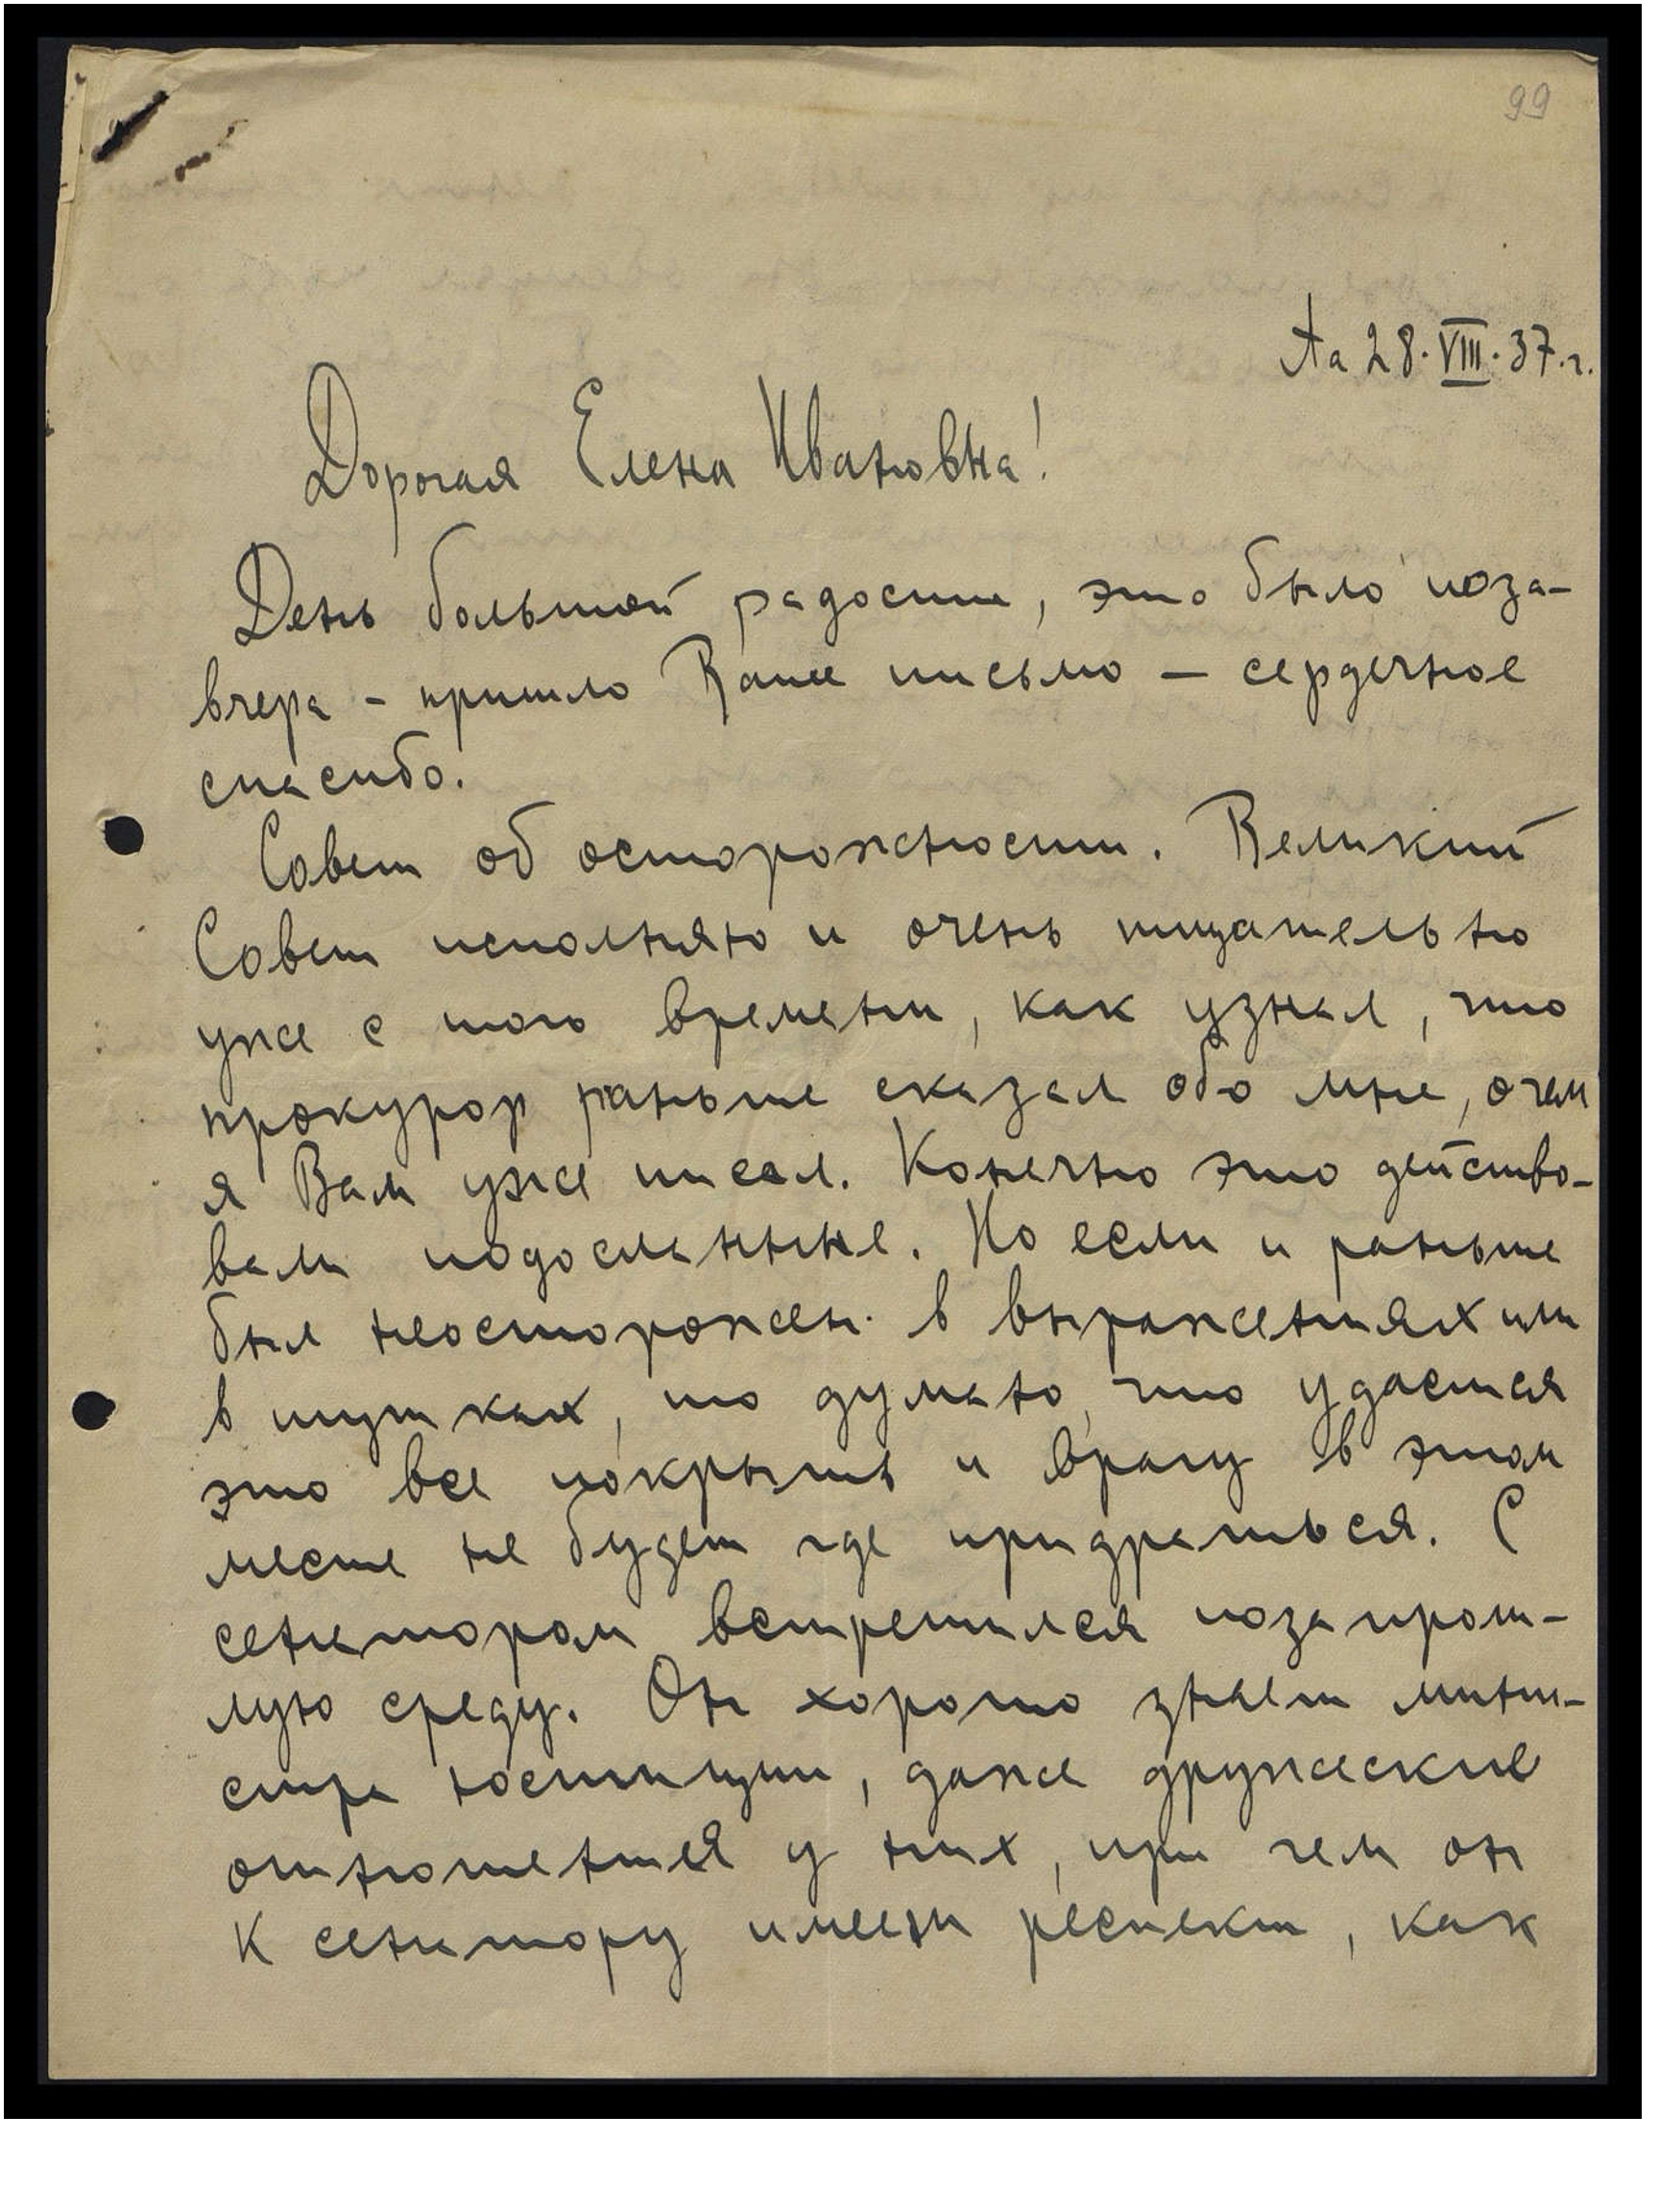 99
На 28.VIII.37.г.
Дорогая Елена Ивановна!
День большой радости, это было поза-
вчера - пришло Ваше письмо - сердечное
спасибо.
Совет об осторожности. Великий
Совет исполняю и очень тщательно
уже с того времени, как узнал, что
прокурор раньше сказал обо мне, о чем
я Вам уже писал. Конечно это действо-
вали подосланные. Но если и раньше
был неосторожен в выражениях или
в шутках, то думаю, что удастся
это все покрыть и врагу в этом
месте не будет где придраться. С
сенатором встретился позапрош-
лую среду. Он хорошо знает мини-
стра юстиции, даже дружеские
отношения у них, при чем он
к сенатору имеет респект, как